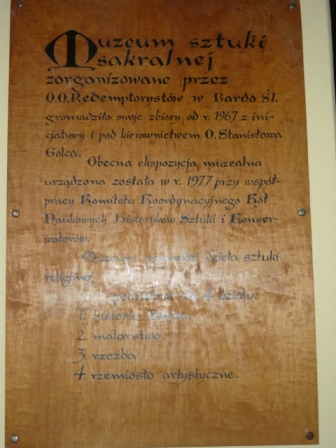 Muzeum sztuki
sakralnej
zorganizowane przez
O.O. Redemptorystów w Bardo Śl.
gromadziło swoje zbiory od r. 1967 z ini-
cjatywy i pod kierownictwem O. Stanisława
Golca.
Obecna ekspozycja muzealna
urządzona została w r. 1977 przy współ-
pracy Komitetu Koordynacyjnego Kół
Naukowych Historyków Sztuki i Konser-
watorów.
Muzeum dzieła sztuki
religijnej
4 działy:
1. historia
2. malarstwo.
3. rzeźba.
4. rzemiosło artystyczne.